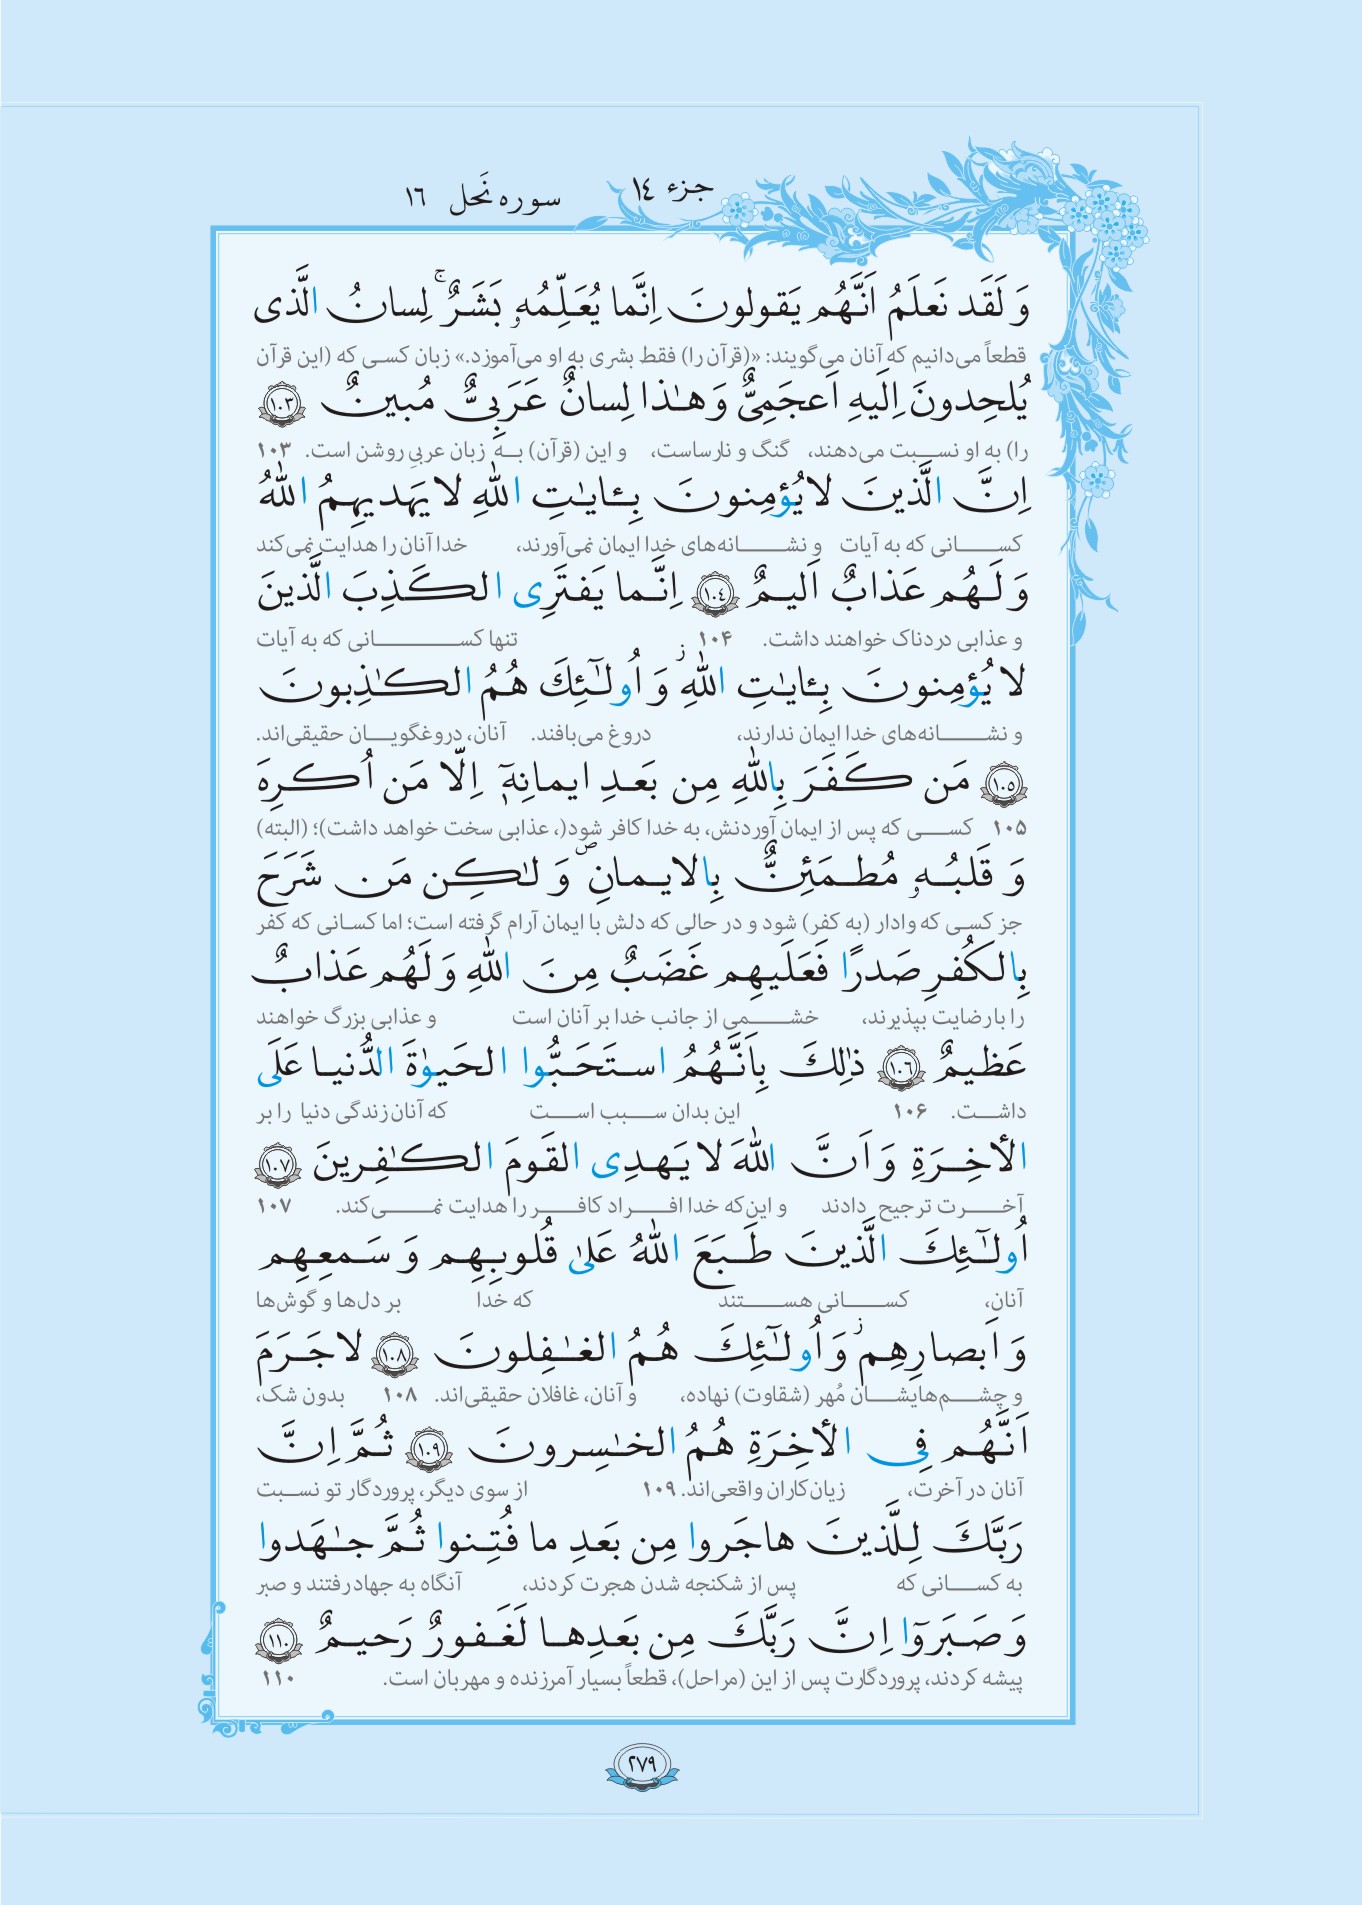 جزء ١٤
سوره نَحل ١٦
وَ لَقَد نَعلَمُ اَنَّهُم يَقولونَ اِنَّما يُعَلِّمُهو بَشَرٌ ۚ لِسانُ الَّذی
قطعاً می‌دانیم که آنان می‌گویند: «(قرآن را) فقط بشری به او می‌آموزد.» زبان کسی که (این قرآن
يُلحِدونَ اِلَيهِ اَعجَمِیٌّ وَ هٰذا لِسانٌ عَرَبِیٌّ مُبينٌ ١٠٣
را) به او نسبت می‌دهند، گنگ و نارساست، و این (قرآن) به زبان عربیِ روشن است. ۱۰۳
اِنَّ الَّذينَ لا يُؤمِنونَ بِـٔايٰتِ اللّٰهِ لا يَهديهِمُ اللّٰهُ
کسانی که به آیات و نشانه‌های خدا ایمان نمی‌آورند، خدا آنان را هدایت نمی‌کند
وَ لَهُم عَذابٌ اَليمٌ ١٠٤ اِنَّما يَفتَرِی الكَذِبَ الَّذينَ
و عذابی دردناک خواهند داشت. ۱۰۴ تنها کسانی که به آیات
لا يُؤمِنونَ بِـٔايٰتِ اللّٰهِ ز وَ اُولٰٓئِكَ هُمُ الكٰذِبونَ
و نشانه‌های خدا ایمان ندارند، دروغ می‌بافند. آنان، دروغگویان حقیقی‌اند.
١٠٥ مَن كَفَرَ بِاللّٰهِ مِن بَعدِ ايمانِهٖٓ اِلّا مَن اُكرِهَ
۱۰۵ کسی که پس از ایمان آوردنش، به خدا کافر شود(، عذابی سخت خواهد داشت)؛ (البته)
وَ قَلبُهو مُطمَئِنٌّ بِالايمانِ ص وَ لٰكِن مَن شَرَحَ
جز کسی که وادار (به کفر) شود و در حالی که دلش با ایمان آرام گرفته است؛ اما کسانی که کفر
بِالكُفرِ صَدرًا فَعَلَيهِم غَضَبٌ مِنَ اللّٰهِ وَ لَهُم عَذابٌ
را با رضایت بپذیرند، خشمی از جانب خدا بر آنان است و عذابی بزرگ خواهند
عَظيمٌ ١٠٦ ذٰلِكَ بِاَنَّهُمُ استَحَبُّوا الحَيوٰةَ الدُّنيا عَلَی
داشت. ۱۰۶ این بدان سبب است که آنان زندگی دنیا را بر
الأخِرَةِ وَ اَنَّ اللّٰهَ لا يَهدِی القَومَ الكٰفِرينَ ١٠٧
آخرت ترجیح دادند و این‌که خدا افراد کافر را هدایت نمی‌کند. ۱۰۷
اُولٰٓئِكَ الَّذينَ طَبَعَ اللّٰهُ عَلیٰ قُلوبِهِم وَ سَمعِهِم
آنانِ، کسانی هستند که خدا بر دل‌ها و گوش‌ها
وَ اَبصارِهِم ز وَ اُولٰٓئِكَ هُمُ الغٰفِلونَ ١٠٨ لا جَرَمَ
و چشم‌هایشان مُهر (شقاوت) نهاده، و آنان، غافلان حقیقی‌اند. ۱۰۸ بدون شک،
اَنَّهُم فِی الأخِرَةِ هُمُ الخٰسِرونَ ١٠٩ ثُمَّ اِنَّ
آنان در آخرت، زیان‌کاران واقعی‌اند. ۱۰۹ از سوی دیگر، پروردگار تو نسبت
رَبَّكَ لِلَّذينَ هاجَروا مِن بَعدِ ما فُتِنوا ثُمَّ جٰهَدوا
به کسانی که پس از شکنجه شدن هجرت کردند، آنگاه به جهاد رفتند و صبر
وَ صَبَروٓا اِنَّ رَبَّكَ مِن بَعدِها لَغَفورٌ رَحيمٌ ١١٠
پیشه کردند، پروردگارت پس از این (مراحل)، قطعاً بسیار آمرزنده و مهربان است. ۱۱۰
٢٧٩